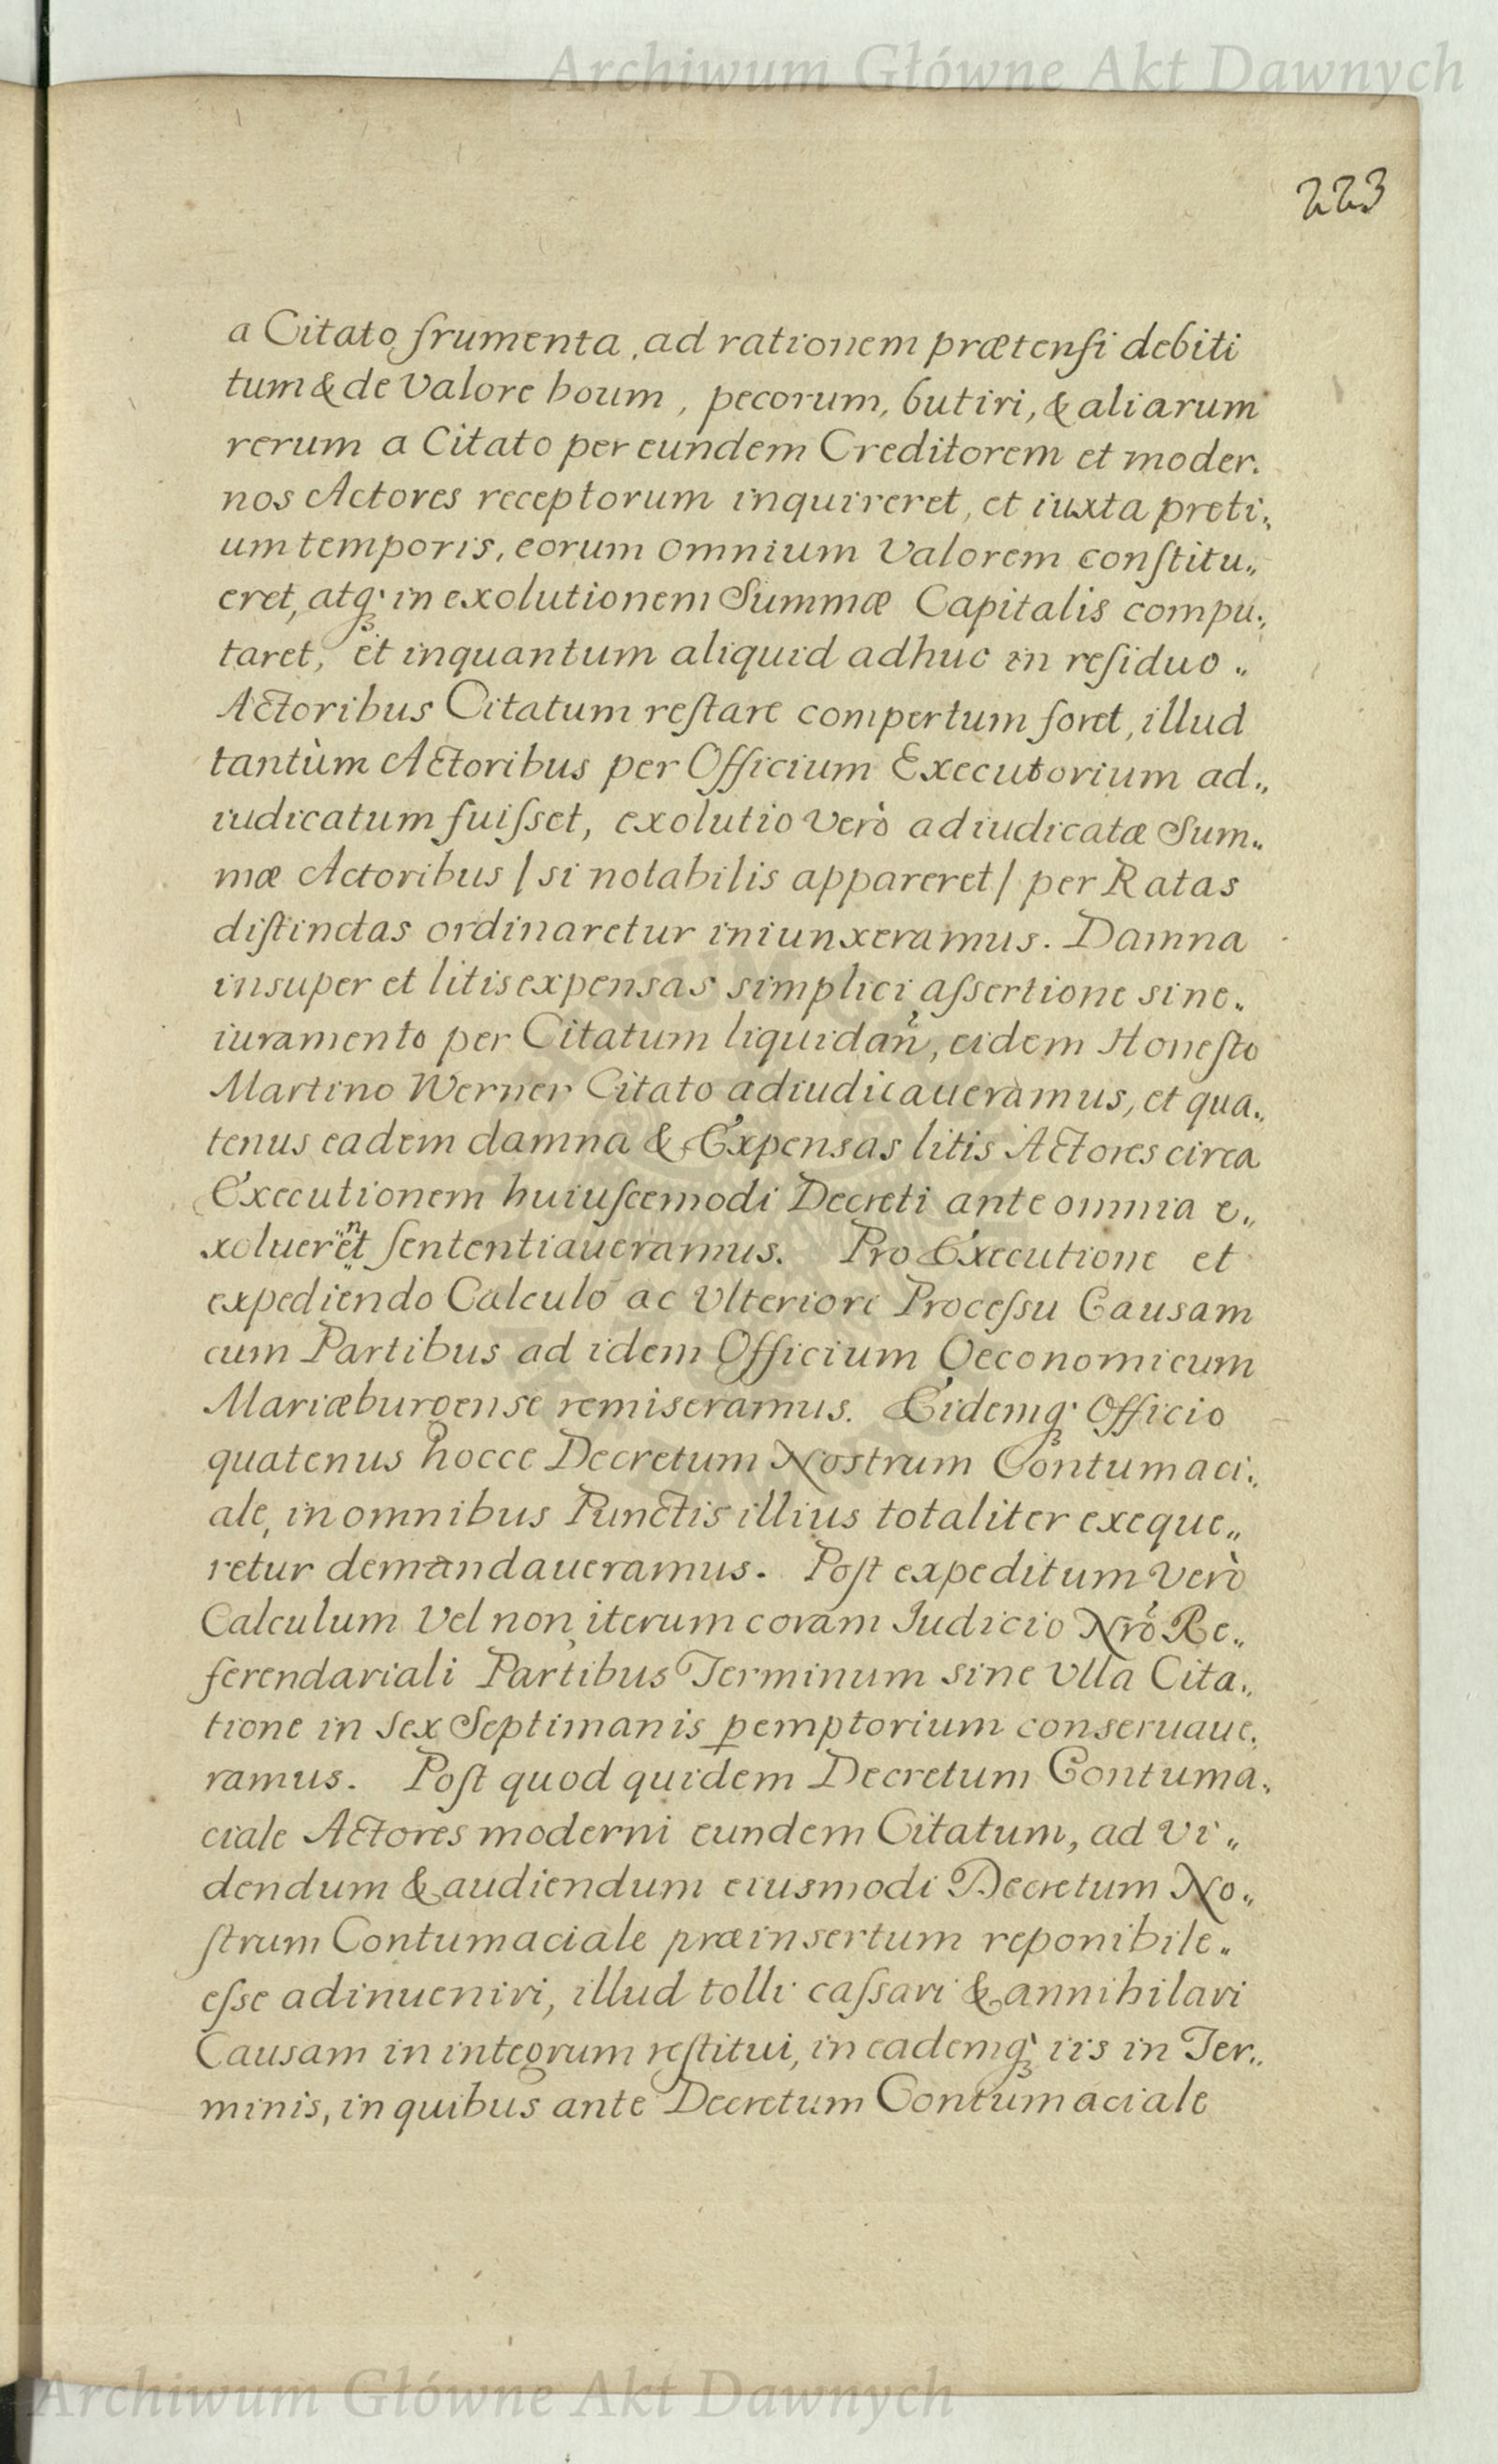 Archiwum Główne Akt Dawnych
223
a Citato frumenta, ad rationem prætensi debiti
tum & de Valore boum, pecorum, butiri, & aliarum
rerum a Citato per eundem Creditorem et moder.
nos Actores receptorum inquireret, et iuxta preti„
um temporis, eorum omnium Valorem constitu„
eret, atq; in exolutionem Summæ Capitalis compu„
taret, et inquantum aliquid adhuc in residuo „
Actoribus Citatum restare compertum foret, illud
tantùm Actoribus per Officium Executorium ad„
iudicatum fuisset, exolutio verò adiudicatæ Sum„
mæ Actoribus / si notabilis appareret / per Ratas
distinctas ordinaretur iniunxeramus. Damna
insuper et litis expensas simplici assertione sine„
iuramento per Citatum liquidan̄, eidem Honesto
Martino Werner Citato adiudicaueramus, et qua„
tenus eadem damna & Expensas litis Actores circa
Executionem huiuscemodi Decreti ante omnia e„
xoluerent sententiaueramus. Pro Executione et
expediendo Calculo ac Vlteriori Processu Causam
cum Partibus ad idem Officium Oeconomicum
Mariæburgense remiseramus. Eidemq; Officio
quatenus hocce Decretum Nostrum Contumaci„
ale, in omnibus Punctis illius totaliter exeque„
retur demandaueramus. Post expeditum verò
Calculum Vel non, iterum coram Iudicio Nrō Re„
ferendariali Partibus Terminum sine Vlla Cita„
tione in Sex Septimanis pemptorium conseruaue„
ramus. Post quod quidem Decretum Contuma„
ciale Actores moderni eundem Citatum, ad Vi„
dendum & audiendum eiusmodi Decretum No„
strum Contumaciale præinsertum reponibile„
esse adinueniri, illud tolli cassari & annihilari
Causam in integrum restitui, in eademq; iis in Ter„
minis, in quibus ante Decretum Contumaciale
Archiwum Główne Akt Dawnych